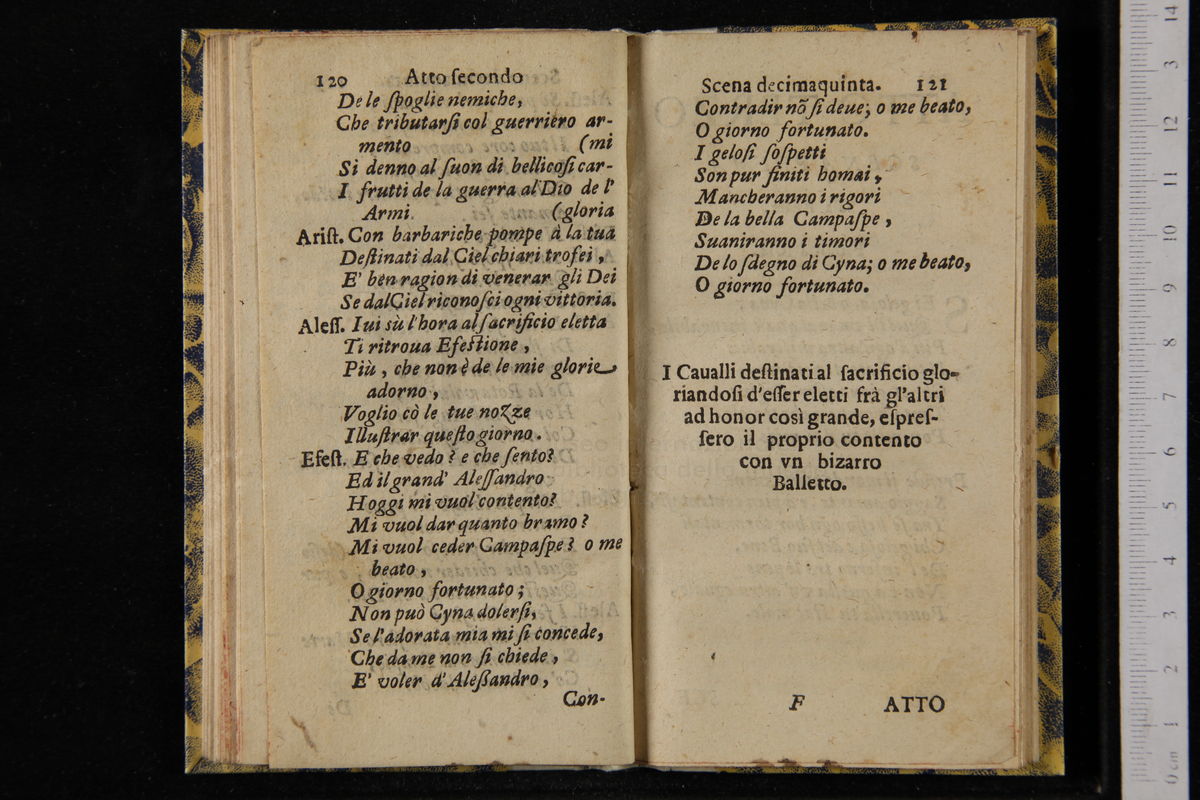 120 Atto ſecondo
De le ſpoglie nemiche,
Che tributarſi col guerriero ar-
mento (mi
Si denno al ſuon di bellicoſi car-
I frutti de la guerra al Dio de l'
Armi. (gloria
Ariſt. Con barbariche pompe à la tua
Deſtinati dal Ciel chiari trofei,
E' ben ragion di venerar gli Dei
Se dal Ciel riconoſci ogni vittoria.
Aleſſ. Iui sù l'hora al ſacrificio eletta
Ti ritroua Efeſtione,
Più, che non è de le mie glorie
adorno,
Voglio cò le tue nozze
Illuſtrar queſto giorno.
Efeſt. E che vedo? e che ſento?
Ed il grand' Aleſſandro
Hoggi mi vuol contento?
Mi vuol dar quanto bramo?
Mi vuol ceder Campaſpe? o me
beato,
O giorno fortunato;
Non può Cyna dolerſi,
Se l'adorata mia mi ſi concede,
Che da me non ſi chiede,
E' voler d'Aleßandro,
Con-
Scena decimaquinta. 121
Contradir nõ ſi deue; o me beato,
O giorno fortunato.
I geloſi ſoſpetti
Son pur finiti homai,
Mancheranno i rigori
De la bella Campaſpe,
Suaniranno i timori
De lo ſdegno di Cyna; o me beato,
O giorno fortunato.
I Caualli deſtinati al ſacrificio glo-
riandoſi d'eſſer eletti frà gl'altri
ad honor così grande, eſpreſ-
ſero il proprio contento
con vn bizarro
Balletto.
F ATTO
0 cm 1 2 3 4 5 6 7 8 9 10 11 12 3 14